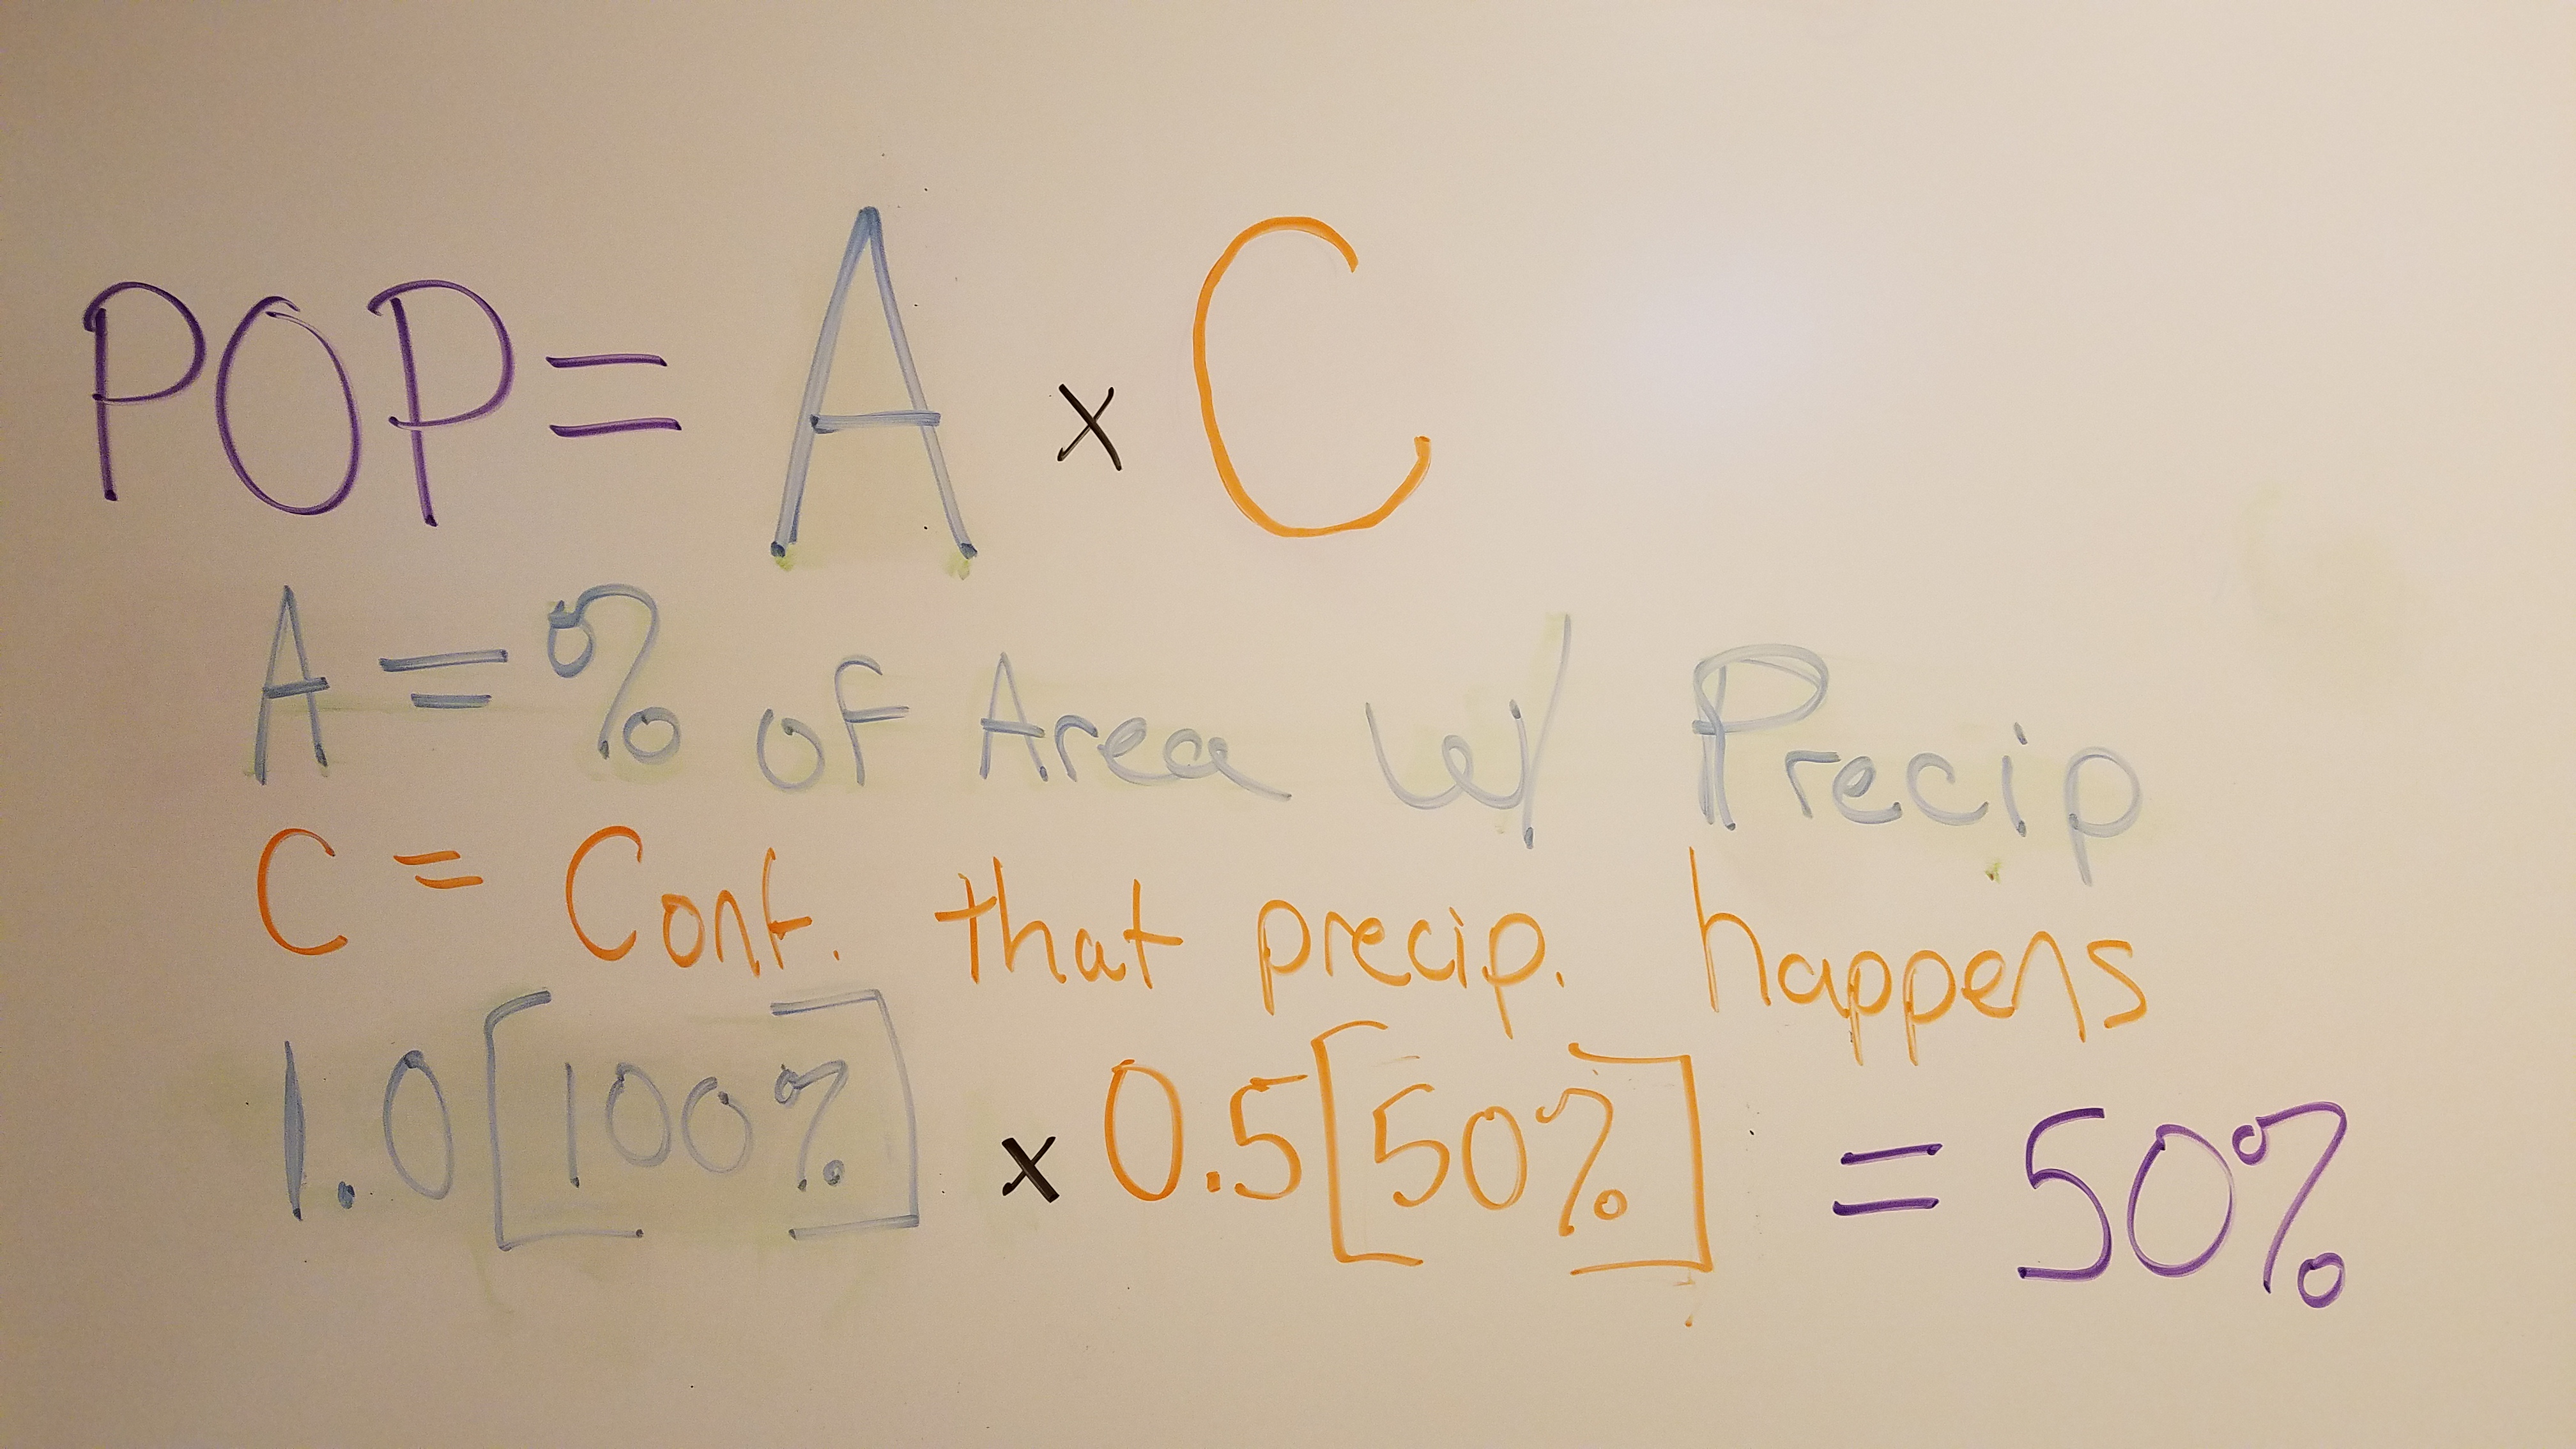 POP = A x C
A = % of Area w/ Precip
C = Conf. that precip. happens
1.0 [100%] x 0.5 [50%] = 50%